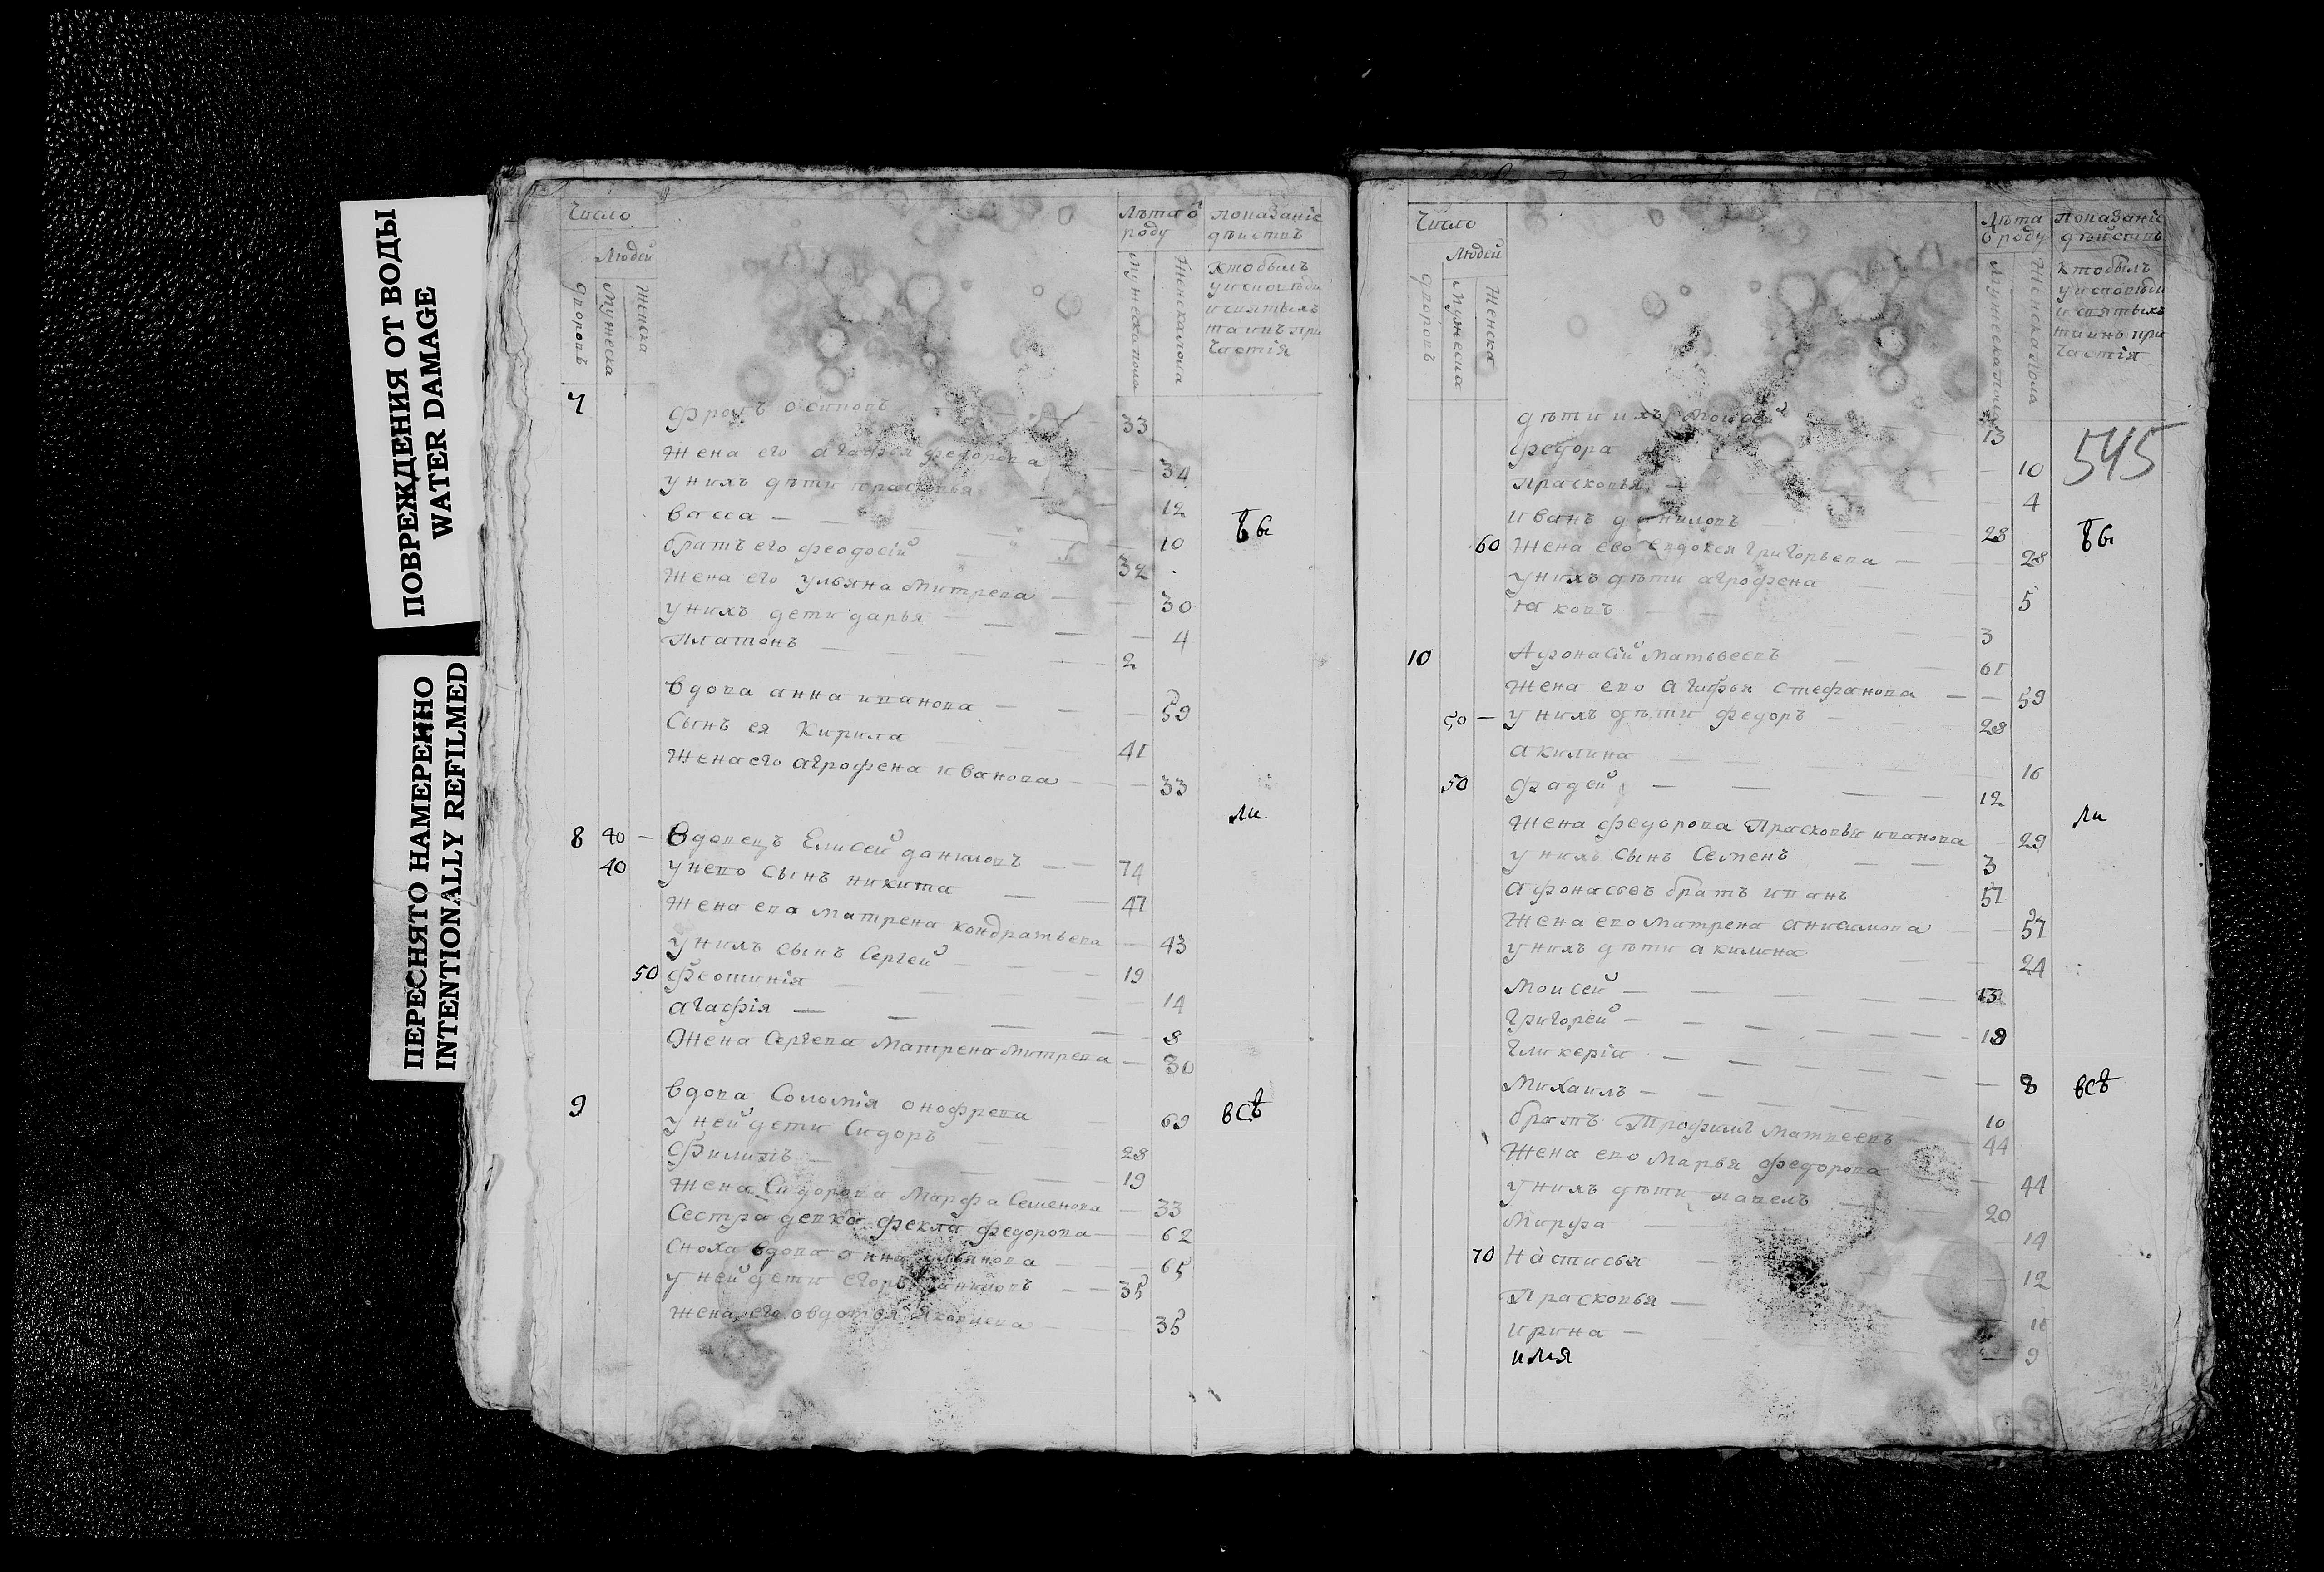 ПОВРЕЖДЕНИЯ ОТ ВОДЫ
WATER DAMAGE
ПЕРЕСНЯТО НАМЕРЕННО
INTENTIONALLY REFILMED
Число
Людей
дворовъ
мужеска
женска
лѣта ѿ роду
мужеска пола
женска пола
показаніе
дѣиствъ
кто былъ
у исповѣди
и святыхъ
таинъ при
частія
7
Фролъ осиповъ 33
жена его агафья федорова 34
у нихъ дѣти прасковья 12
васса 10
братъ его феодосій 32
жена его ульяна митрева 30
у нихъ дети дарья 4
платонъ 2
вдова анна иванова 59
сынъ ея кирила 41
жена его агрофена иванова 33
бы
ли
8 40 вдовецъ Елисей даниловъ 74
40 у нево сынъ никита 47
жена ева матрена кондратьева 43
у нихъ сынъ сергей 19
50 феотинія 14
агафія 8
жена сергева матрена митрева 30
9 вдова соломія онофрева 69
всѣ
у ней дети сидоръ 28
филипъ 19
жена сидорова марфа семенова 33
сестра девка фекла федорова 62
сноха вдова анна ульянова 65
у ней дети егоръ даниловъ 35
жена его овдотья яковлева 35
Число
Людей
дворовъ
мужеска
женска
Лѣта
ѿ роду
мужеска пола
женска пола
показаніе
дѣйствъ
кто былъ
у исповѣди
и святыхъ
таинъ при
частія
545
дѣти ихъ моисей 13
федора 10
прасковья 4
иванъ даниловъ 28
60 жена ево евдокея григорьева 28
у нихъ дѣти агрофена 5
яковъ 3
бы
10 Афонасій матвеевъ 61
жена ево агафья стефанова 59
50 у нихъ дѣти федоръ 28
акилина 16
50 фадей 12
жена федорова прасковья иванова 29
ли
у нихъ сынъ семенъ 3
афонасьевъ братъ иванъ 57
жена ево матрена анисимова 57
у нихъ дѣти акилина 24
моисей 13
григорей 18
гликерія 8
михаилъ 10
всѣ
братъ трофимъ матвеевъ 44
жена ево марья федорова 44
у нихъ дѣти павелъ 20
марфа 14
70 настасья 12
прасковья 11
ирина 9
илія